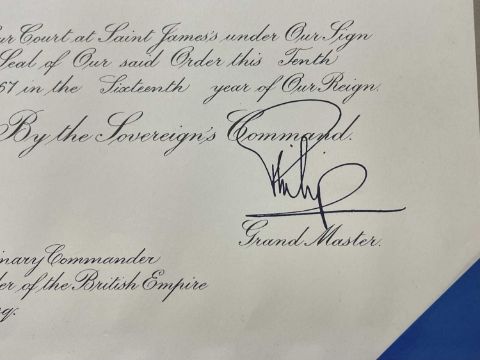 Our Court at Saint James's under Our Sign
Seal of Our said Order this Tenth
67 in the Sixteenth year of Our Reign.
By the Sovereign's Command.
Philip
Grand Master.
inary Commander
der of the British Empire
q.